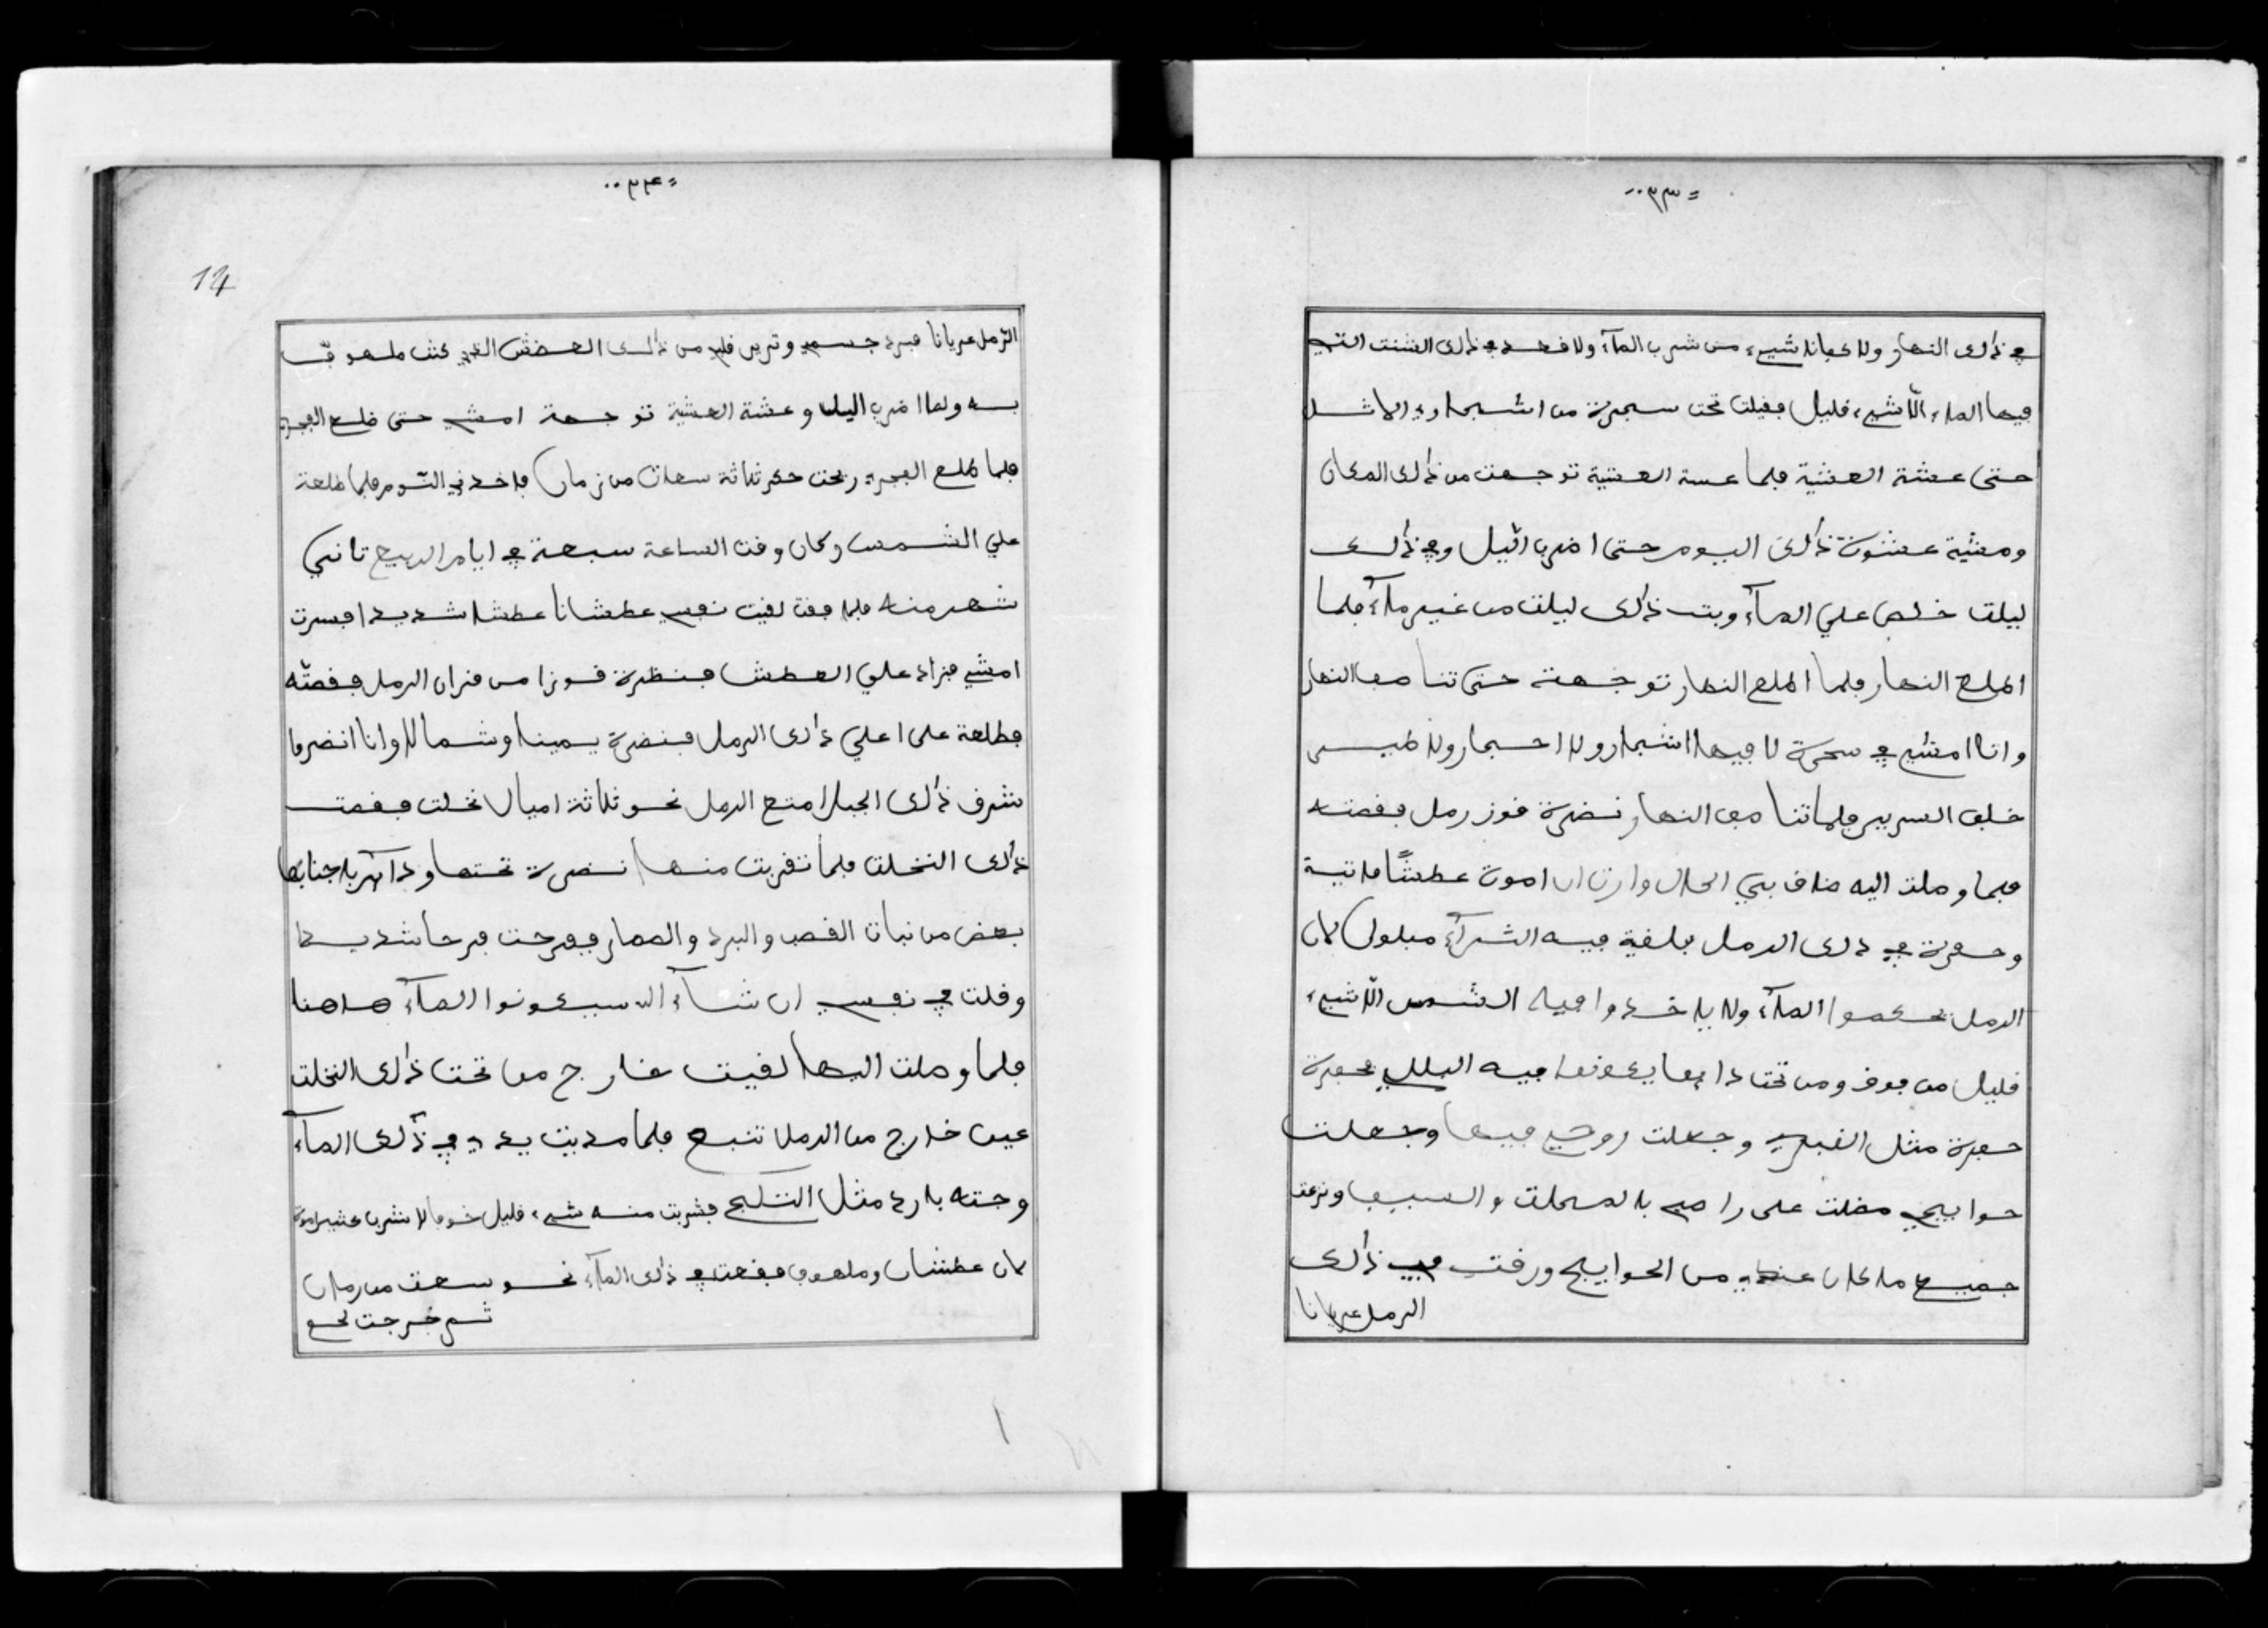 =٣٣٠٠
في ذالك النهار ولا كفانا شيء من شرب المآء ولا فضل في ذالك الشنت التي
فيها الماء الّا شيء قليل فقيلت تحت سجرة من اشجاري الاثل
حتى عشة العشية فلما عسة العشية توجهت من ذالك المكان
ومشية عشوة ذالك اليوم حتى اضرب اليل وفي ذالك
ليلت خلص علي المآء وبت ذالك ليلت من غير مآء فلما
اطلع النهار فلما اطلع النهار توجهة حتى تنا صف النهار
وانا امشي في سحرة لا فيها اشجار ولا احجار ولا طير
خلف السرير فلما تنا صف النهار نضرة فوز رمل فقصته
فلما وصلت اليه ضاق بي الحال وارت ان اموت عطشًا فاتية
وحفرة في ذالك الرمل فلقية فيه الثرآء مبلول لان
الرمل يحكموا المآء ولا ياخدوا فيه الشمس الّا شيء
قليل من فوق ومن تحت دايما يكونوا فيه البلل فحفرة
حفرة مثل القبر وجعلت روحي فيها وجعلت
حوايجي مضلت على راسي بالمكحلت والسيف ونزعت
جميع ما كان عندي من الحوايج ورقت في ذالك
الرمل عريانا
=٣٤٠٠
14
الرّمل عريانا فبرد جسمي وتريض قلبي من ذالك العضش الذي كنت ملهوف
به ولما اضرب اليل وعشة العشية توجهة امشي حتى ضلع الفجر
فلما طلع الفجر ريحت حكر ثلاثة سعات من زمان فاخدني النّوم فلما طلعة
علي الشمس وكان وقت الساعة سبعة في ايام الربيع تاني
شهر منه فلما فقت لقيت نفسي عطشانا عطشا شديدا فسرت
امشي فزاد علي العطش فنظرة فوزا من فزان الرمل فقصتّه
فطلعة على اعلي ذالك الرمل فنضرة يمينا وشمالا وانا انضر فا
شرف ذالك الجبل امتع الرمل نحو ثلاثة اميال نخلت فقصت
ذالك النخلت فلما تقربت منها نضرة تحتها ودآير باجنابها
بعض من نبات القصب والبرد والصمار ففرحت فرحا شديدا
وقلت في نفسي ان شآء الله سيكونوا المآء هاهنا
فلما وصلت اليها لقيت خارج من تحت ذالك النخلت
عين خارج من الرمل تنبع فلما مديت يدي في ذالك المآء
وجته بارد مثل التلج فشربت منه شيء قليل خوفا لا نشرب كثير اموت
لان عطشان وملهوف فبقعت في ذالك المآء نحو سعت من زمان
ثم خرجت نحو